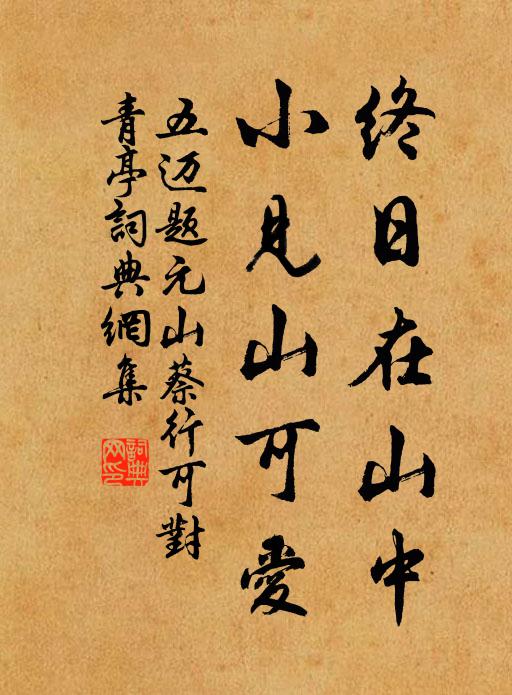 终日在山中
小见山可愛
五迈题元山蔡行可對
青亭詞典網集
詞典网印